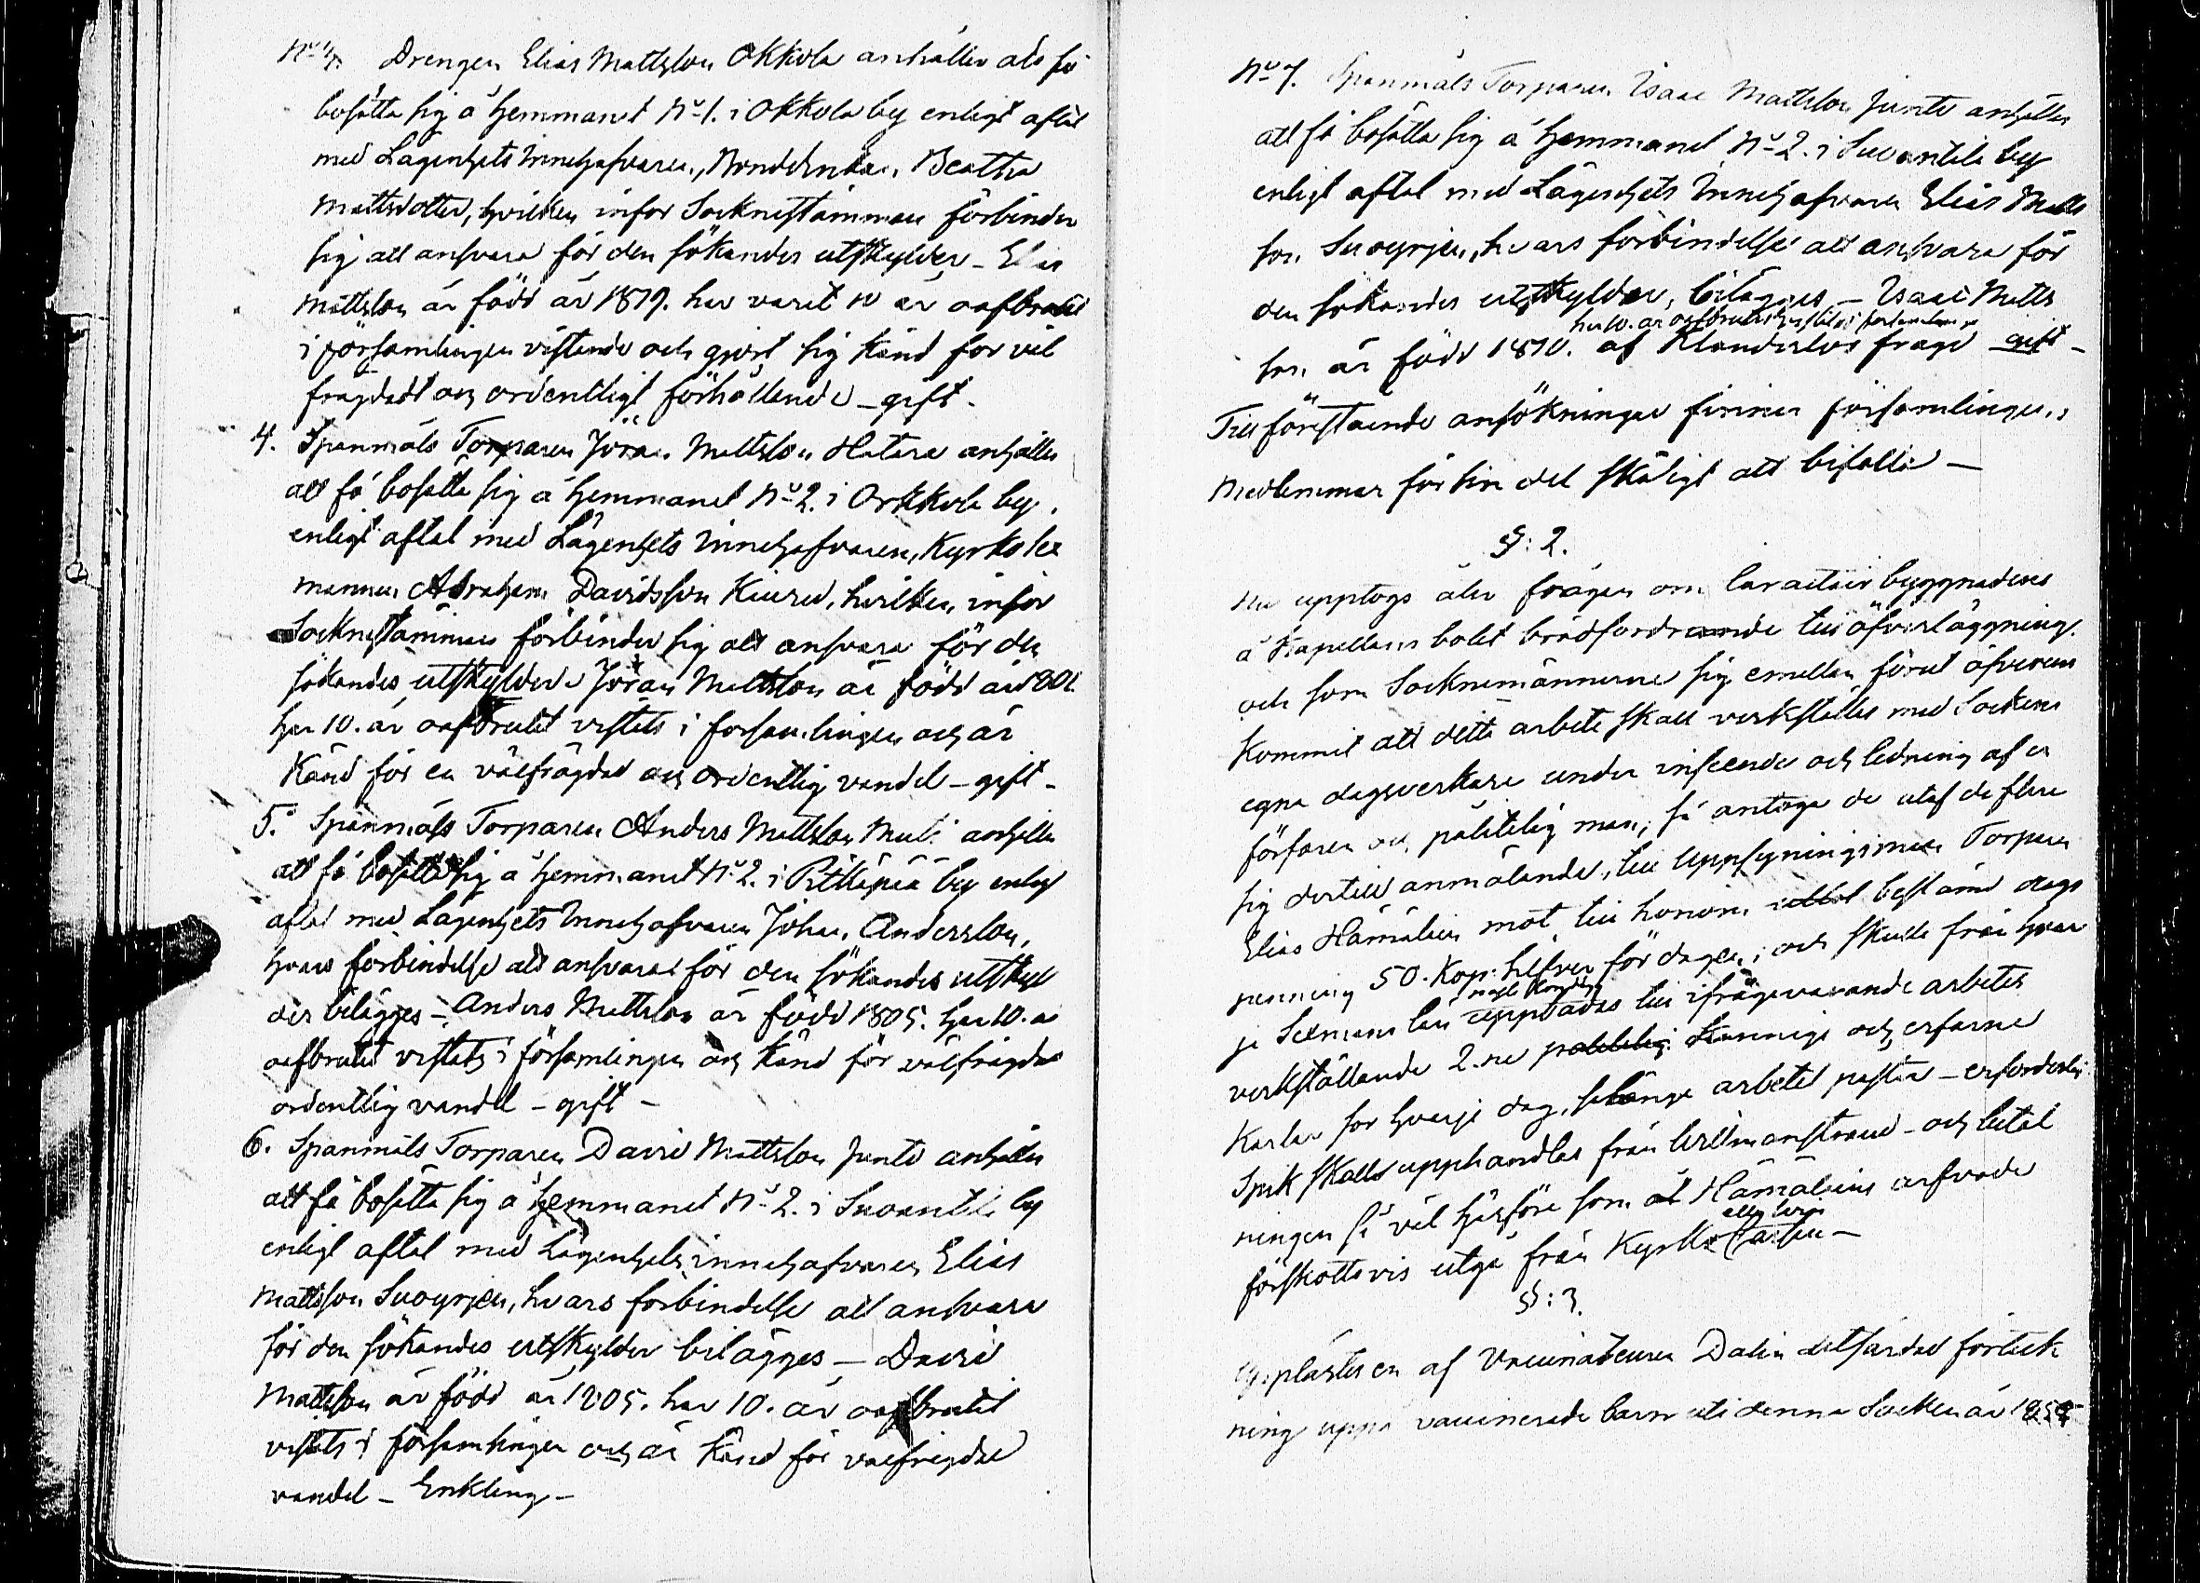 Drengen Elias Mattsson Okkola anhåller att få
bosätta sig å Hemmanet No 1. i Okkola by enligt aftal
med Lägenhets Innehafvaren, Bondenkan Beatha
Mattsdotter, hvilken infor Socknestämman förbinder
sig att ansvara för den sökandes utskylder - Elias
Mattsson är född år 1819. har varit 10 år oafbrutet
i församlingen vistande och gjort sig känd for väl
frägdadt och ordentligt förhållende - gift -
4. Spanmåls Torparen Jöran Mattsson Hatara anhåller
att få bosätta sig å Hemmanet No 2. i Orkkola by,
enligt aftal med Lägenhets Innehafvaren, Kyrko
mannen Abraham Davidsson Kiuru, hvilken infor
Socknestämman förbinder sig att ansvara för den
sökandes utskylder Jöran Mattsson är född år 1801.
har 10. år oafbrutet vistats i forsamlingen och är
Känd för en välfrägdad och ordentlig vandel - gift -
5. Spanmåls Torparen Anders Mattsson anhåller
att få bosätta sig å Hemmanet No 2. i Pitkäpää by enligt
aftal med Lägenhets Innehafvaren Johan Andersson,
hvars förbindelse att ansvara för den sökandes utskyl
der bilägges - Anders Mattsson är född 1805. har 10. år
oafbrutet vistats i församlingen och Känd för välfrägdad
ordentlig vandel - gift -
6. Spanmåls Torparen David Mattsson Junto anhåller
att få bosätta sig å Hemmanet No 2. i Suoantila by
enligt aftal med Lägenhets innehafvaren Elias
Mattsson Suoyrjen, hvars forbindelse att ansvara
för den sökandes utskylder bilägges - David
Mattsson är född år 1805. har 10. år oafbrutet
vistats i församlingen och är Känd för välfrägdad
vandel - Enkling -
No 7. Spanmåls Torparen Isaac Mattsson Junto anhåller
att få bosätta sig å Hemmanet No 2. i Suoantila by
enligt aftal med Lägenhets Innehafvaren Elias Matts
son Suoyrjen, hvars förbindelse att ansvara för
den sökandes utskylder, bilägges - Isaac Matts
har 10. år oafbrutet vistats i församlingen
son är född 1810. af Klanderlös frägd gift -
Till förestående ansökningar finner församlingens
Medlemmar för sin del skäligt att bifalla -
§: 2.
Nu upptogs åter frågan om byggnadens
å Kapellans bolet brådfordrande till öfverläggning.
och som Socknemännerne sig emellan förut öfverens
Kommit att detta arbete skall verkställas med Sockens
egna dagsverkare under inseende och ledning af en
förfaren och pålitelig man, så antogs de utaf de flere
sig dertill anmälande, till Uppsyningsman Torparen
Elias Hämäläin mot, till honom bestämd dags
penning 50. Kop: Silfver för dagen; och skulle från hvar
je Sexmans län uppbådas till ifrågavarande arbetes
verkställande 2.ne Kunnige och erfarne
Karlar for hvarje dag, så länge arbetet påstår - erforderlig
Spik skall upphandlas från Willmanstrand - och betal
ningen så väl härföre som åt Hämäläins arfvode
förskottsvis utgå från Kyrko Cassan -
§: 3.
Upplästes en af Vaccinateuren Dalin utfärdad förteck
ning uppå vaccinerade barn uti denna Socken år